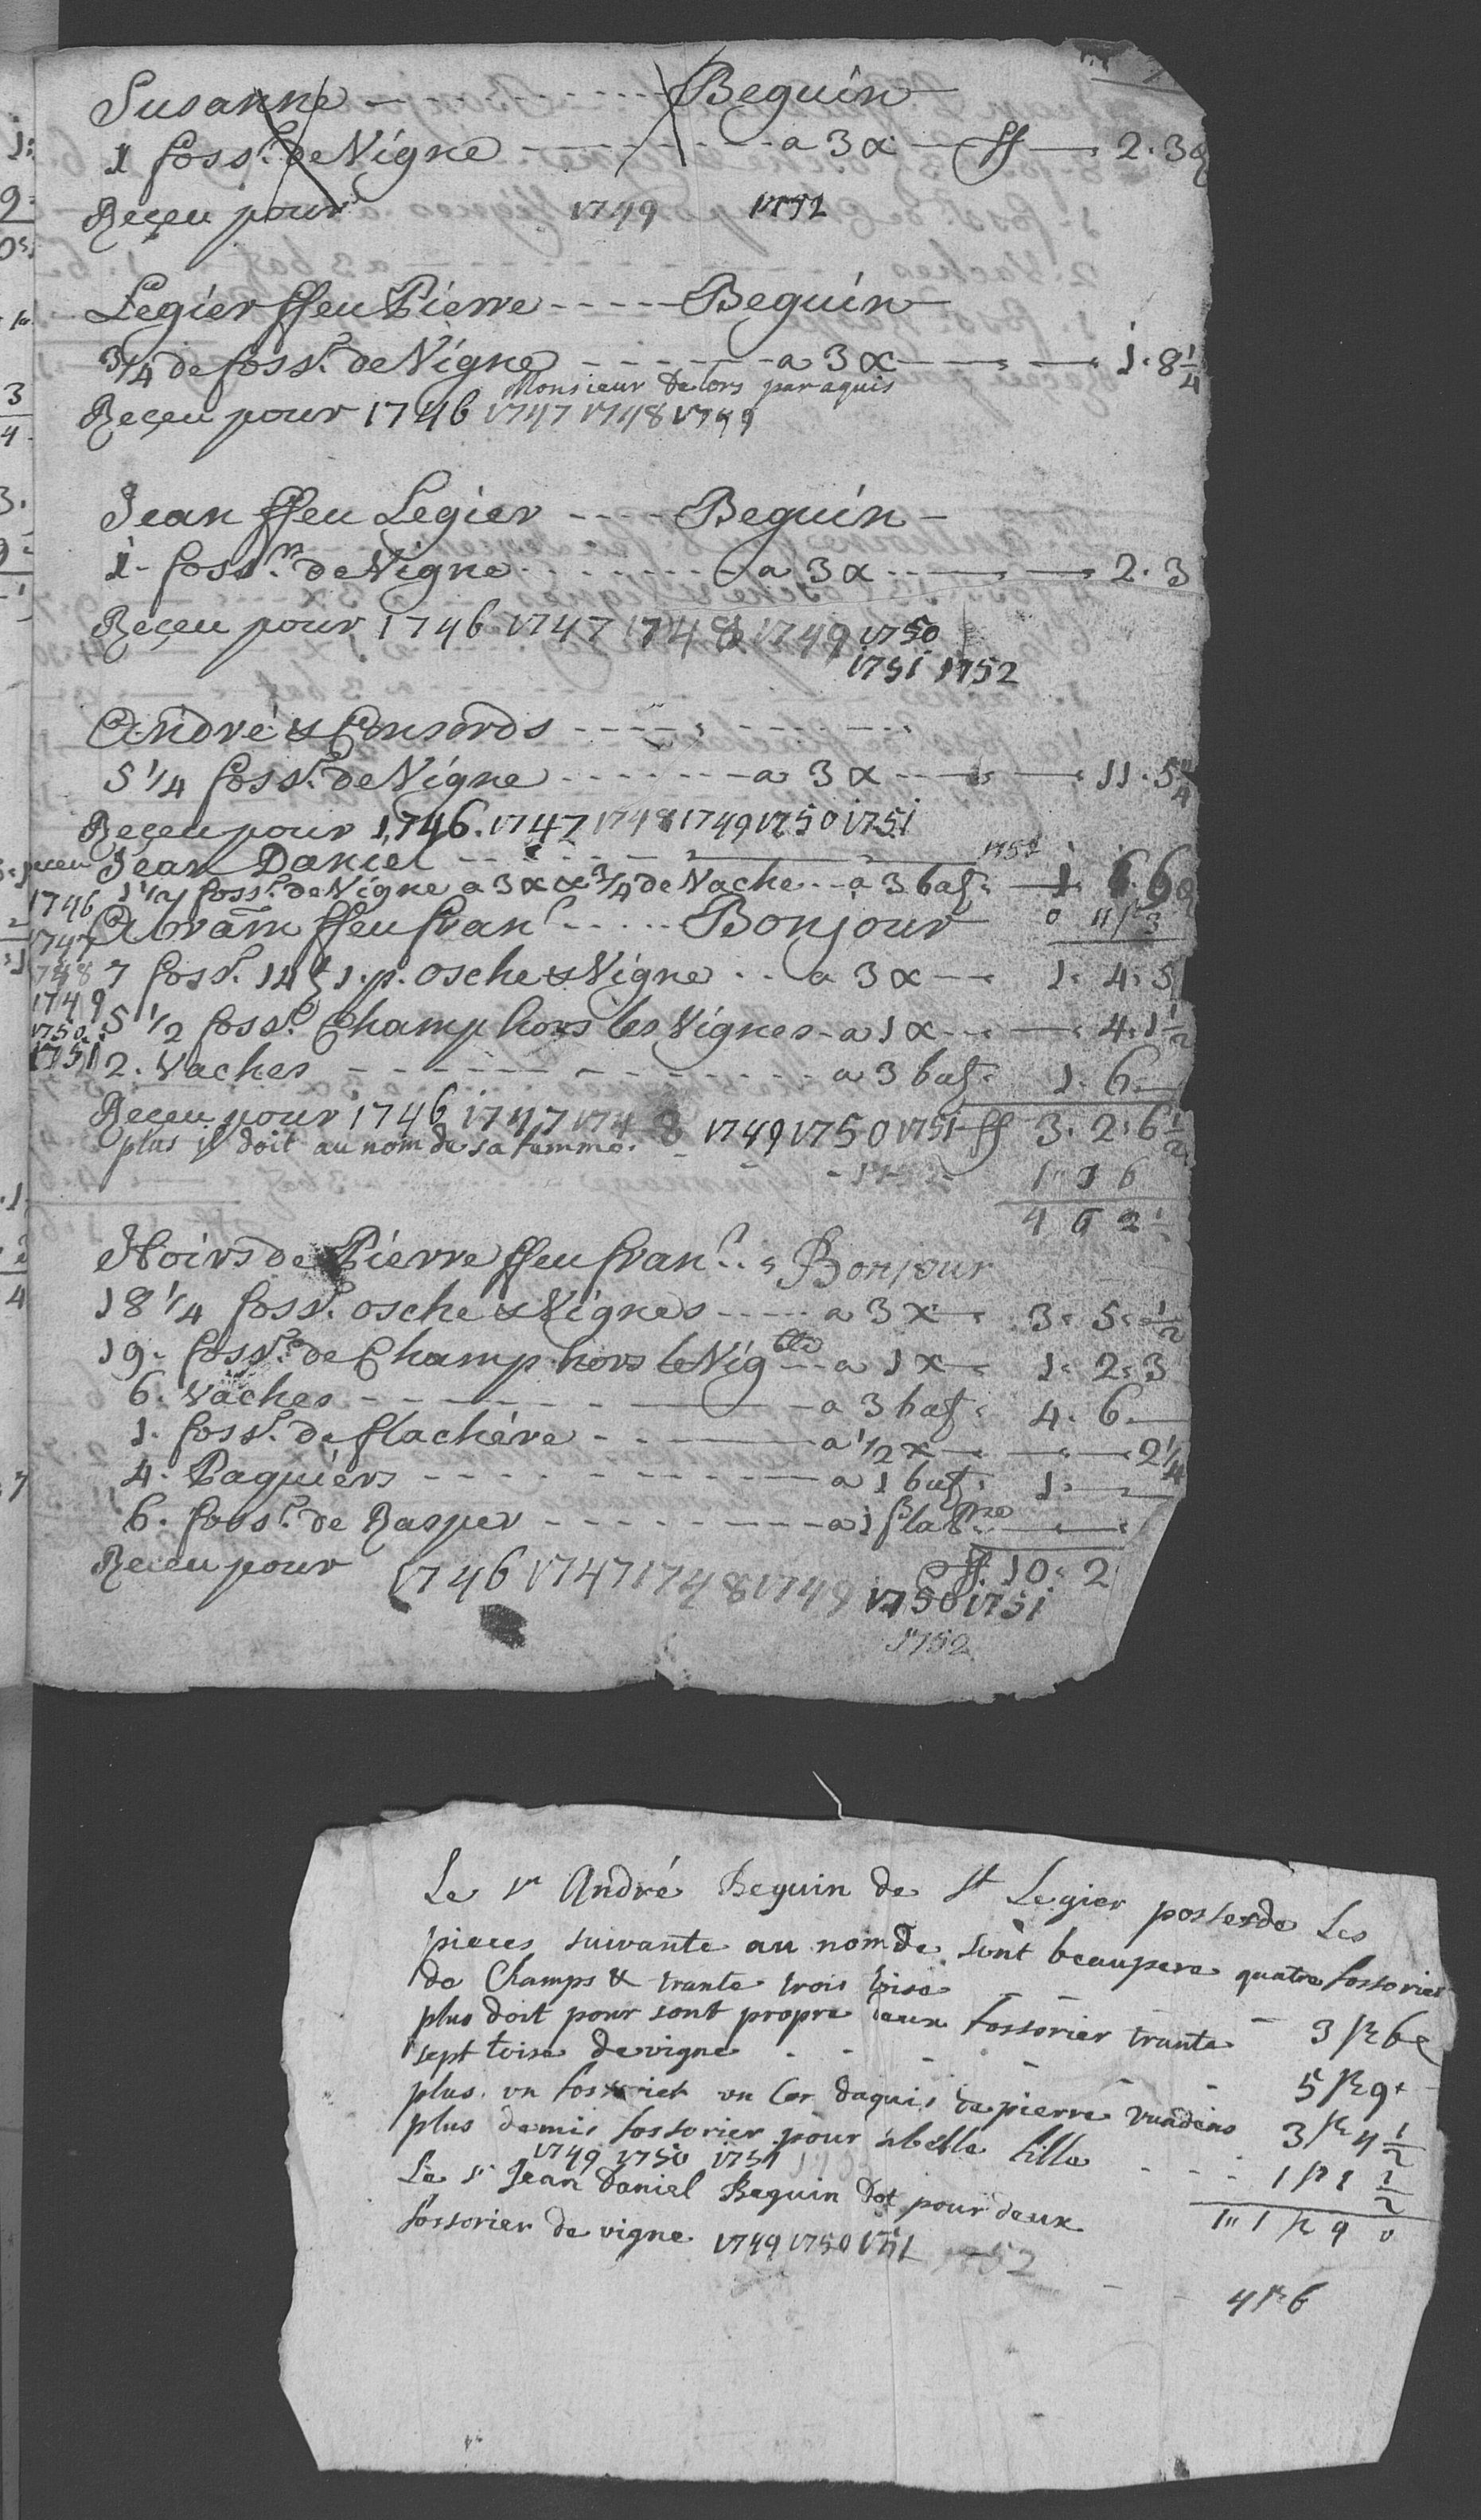 Susanne - - - - - - - Beguin
1 foss.r de Vigne - - - - - a 3 x — ff — 2 · 3
Reçeu pour 1749 1752
Legier ffeu Pierre - - - - - Beguin
3/4 de foss.r de Vigne - - - - - a 3 x — — 1 · 8 1/4
Monsieur De Cors par aquis
Reçeu pour 1746 1747 1748 1749
Jean ffeu Legier - - - - Beguin -
1 - foss.r de Vigne - - - - - a 3 x - - — 2 · 3
Reçeu pour 1746 1747 1748 1749 1750
1751 1752
André & Consords - - - - - - - -
5 1/4 foss.r de Vigne - - - - - a 3 x - - — 11 · 5
Reçeu pour 1746 · 1747 1748 1749 1750 1751
1752
reçeu Jean Daniel - - - - - -
1 1/2 foss.r de Vigne a 3 x & 3/4 de Vache - - a 3 baz
1746 Abram ffeu fran.s - - - - - Bonjour
1747
1748 7 foss.r 14 t 1 · p. osche & Vigne - - a 3 x — 1 · 4 · 5
1749
1750 5 1/2 foss.r Champ hors les Vignes - a 1 x - - — 4 · 1 1/2
1751 2 · Vaches - - - - - - - - - a 3 baz · 1 · 6 —
Reçeu pour 1746 1747 1748 1749 1750 1751 ff 3 · 2 · 6 1/2
plus il doit au nom de sa femme.
1 " 3 6
4 6 2 1/2
Hoirs de Pierre ffeu fran.s - - Bonjour
18 1/4 foss.r osche & Vignes - - - - a 3 x — 3 · 5 · 1/2
19 - foss.r de Champ hors le Vigble - - a 1 x — 1 · 2 · 3
6 · Vaches - - - - - - — a 3 baz · 4 · 6 —
1 · foss.r de flachére - - — a 1/2 x — — 2 1/4
4 · Paquiers - - - - - - — a 1 baz · 1 · —
6 · foss.r de Rasper - - - - - - - a 1 ß la P.ze — —
ff 10 · 2
Reçeu pour 1746 1747 1748 1749 1750 1751
1752
Le Sr André Beguin de St Legier possesde Les
pieces suivante au nom de sont beaupere quatre fossorier
de Champs & trante trois toise - - - 3 ß 6
plus doit pour sont propre deux fossorier trante
sept toise de vigne - - - - - - 5 ß 9
plus un fossorier un Cor daquis de pierre 3 ß 4 1/2
plus demis fossorier pour sa belle fille - - - 1 ß 1 1/2
1749 1750 1751
1 " 1 ß 9 0
Le Sr Jean Daniel Beguin Dot pour deux
fossorier de vigne 1749 1750 1751 1752 - - 4 ß 6